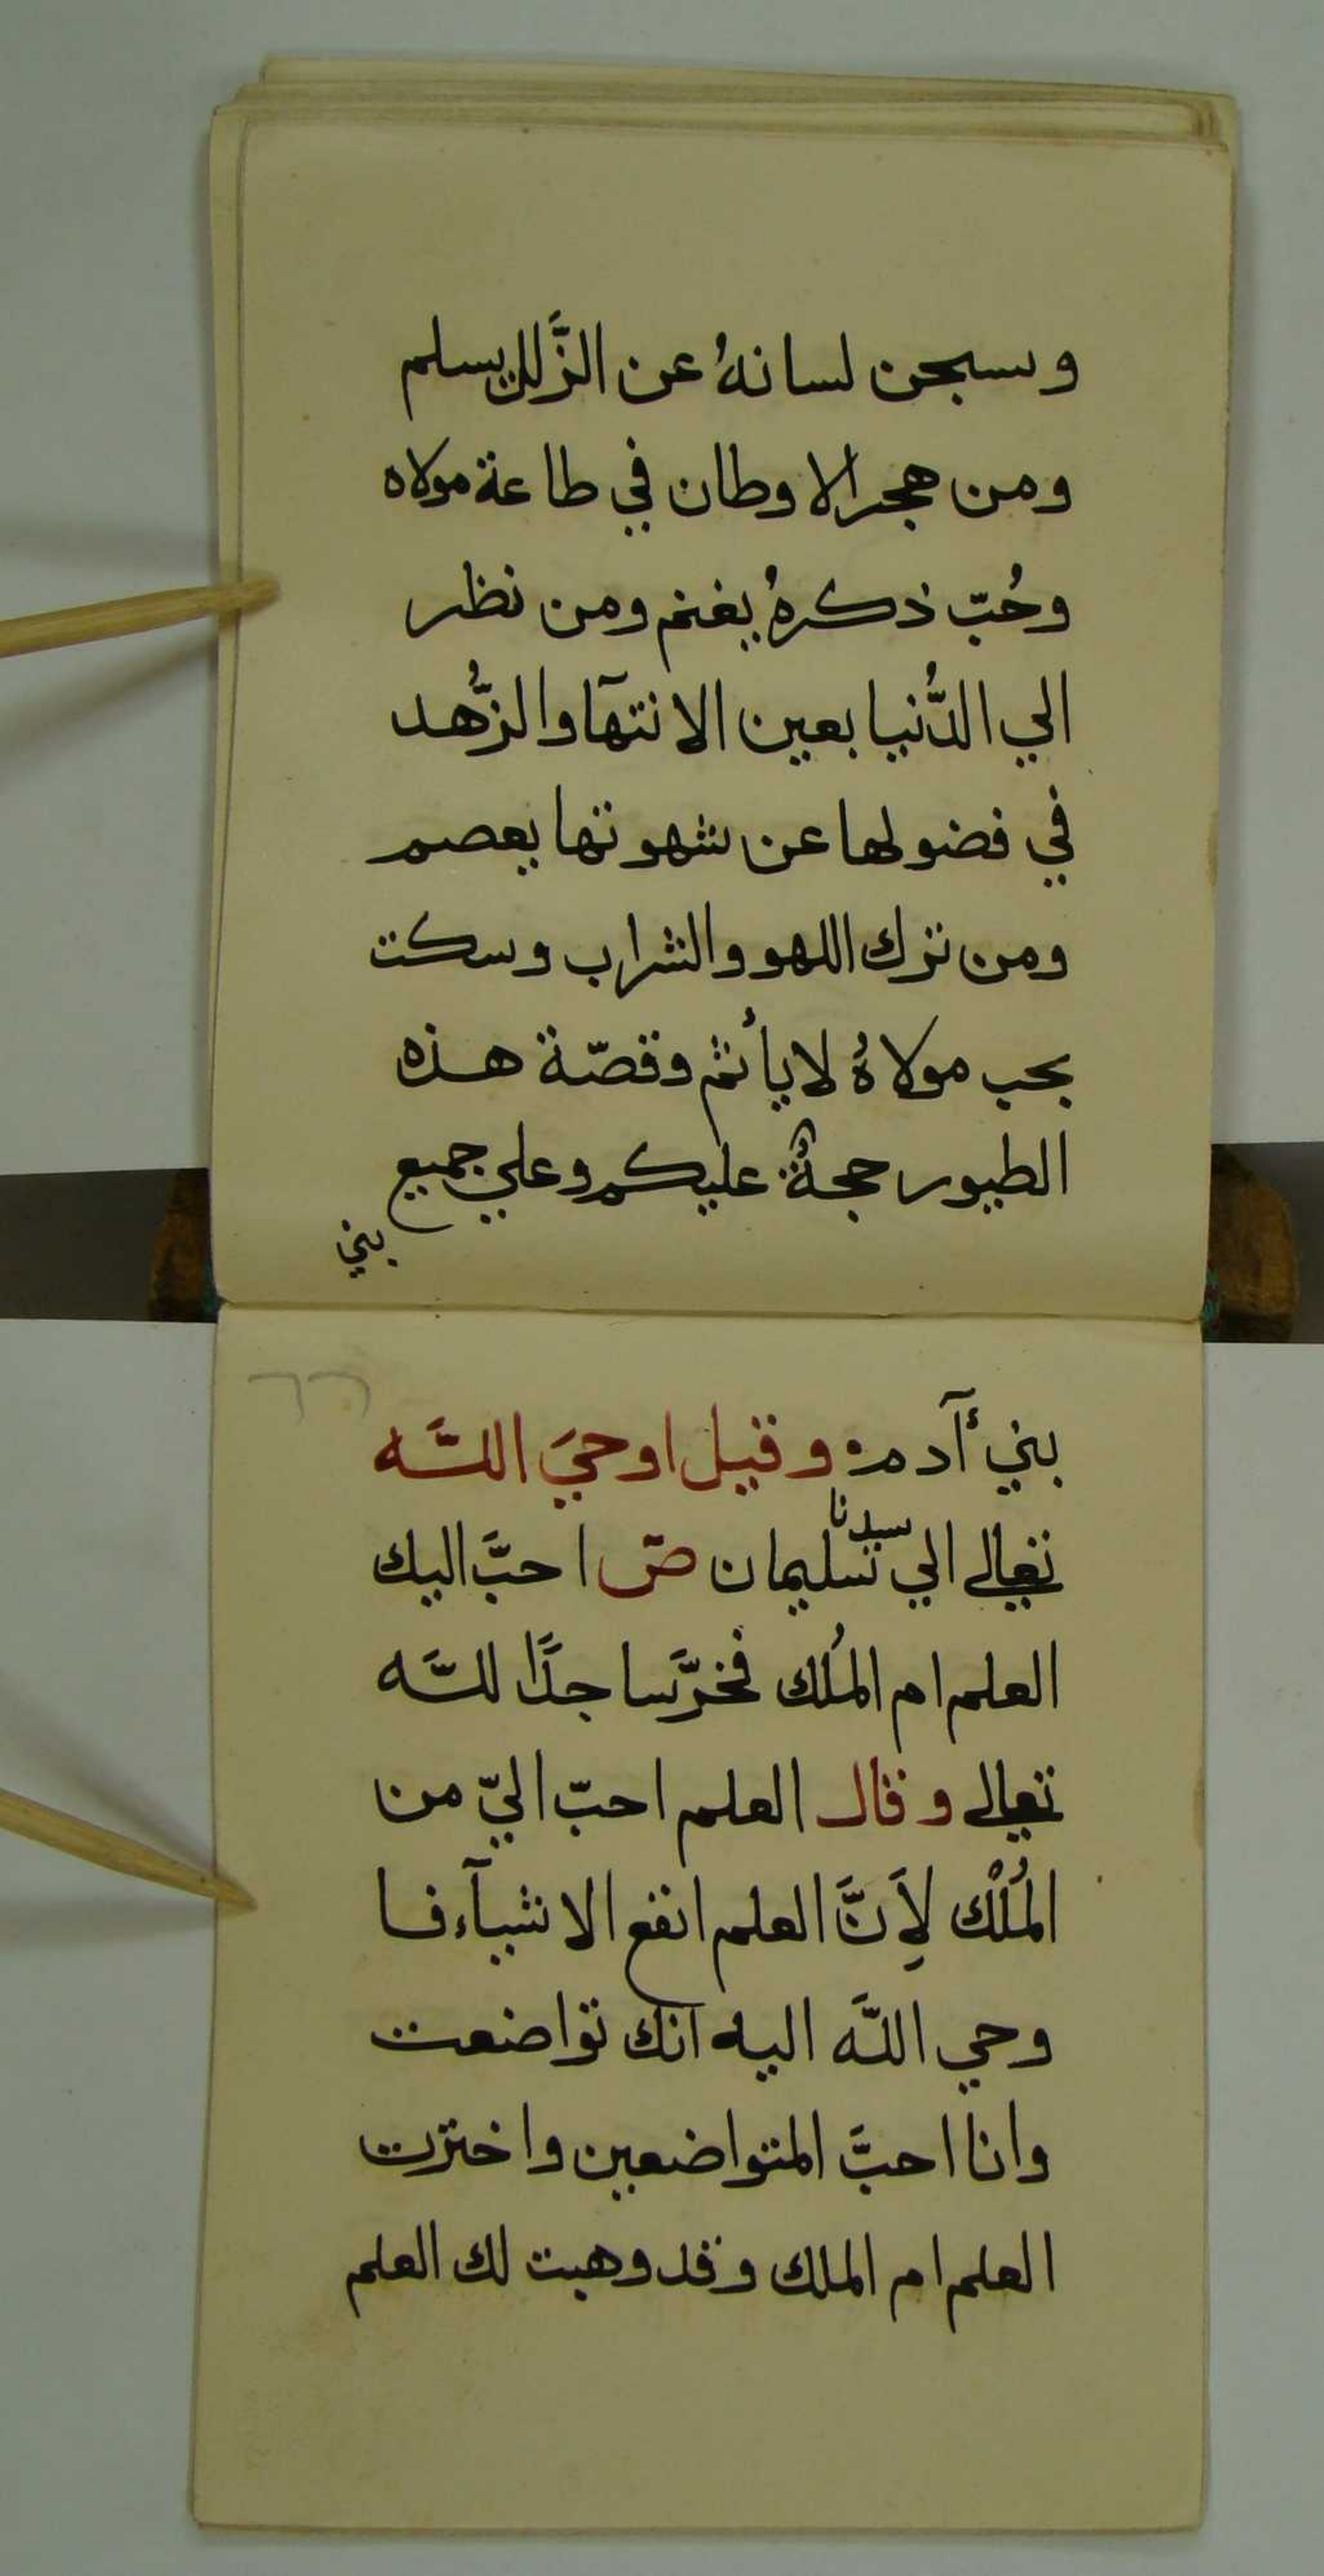 وسجن لسانهُ عن الزَّلل يسلم
ومن هجر الاوطان في طاعة مولاه
وحُبّ ذكرهُ يغنم ومن نظر
الي الدُّنيا بعين الانتهآ والزُّهد
في فضولها عن شهوتها يعصم
ومن ترك اللهو والشراب وسكت
بحب مولاهُ لا يأثم وقصّة هذه
الطيور حجةٌ عليكم وعلي جميع
بني
٦٦
بني أآدم وقيل اوحيَ اللَّه
تعالي الي سيدنا سليمان صّ احبَّ اليك
العلم ام المُلك فخرَّ ساجدًا للَّه
تعالي وقال العلم احبّ اليّ من
المُلْك لِاَنَّ العلم انفع الاشيآء فا
وحي اللَّه اليه انك تواضعت
وانا احبَّ المتواضعين واخترت
العلم ام الملك وقد وهبت لك العلم